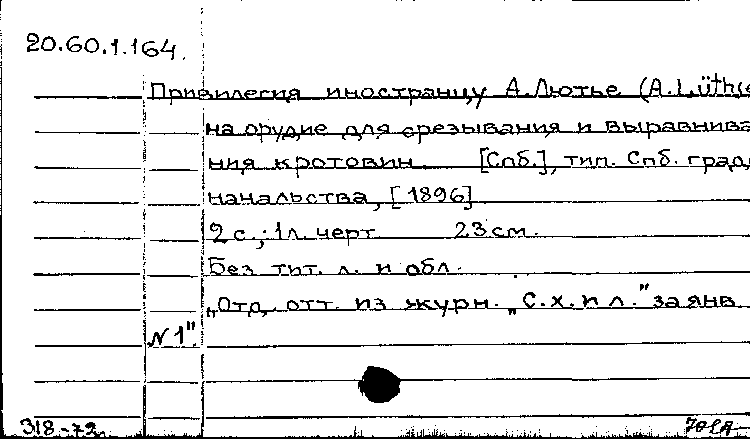 20.60.1.164.
Привилегия иностранцу А. Лютье (A. Lüth
на орудие для срезывания и выравнива
ния кротовин. [Спб.], тип. Спб. градо
начальства, [1896]
2 с.; 1 л. черт. 23 см.
Без тит. л. и обл.
„Отд. отт. из журн. „С.х. и л." за янв
N 1".
318-72